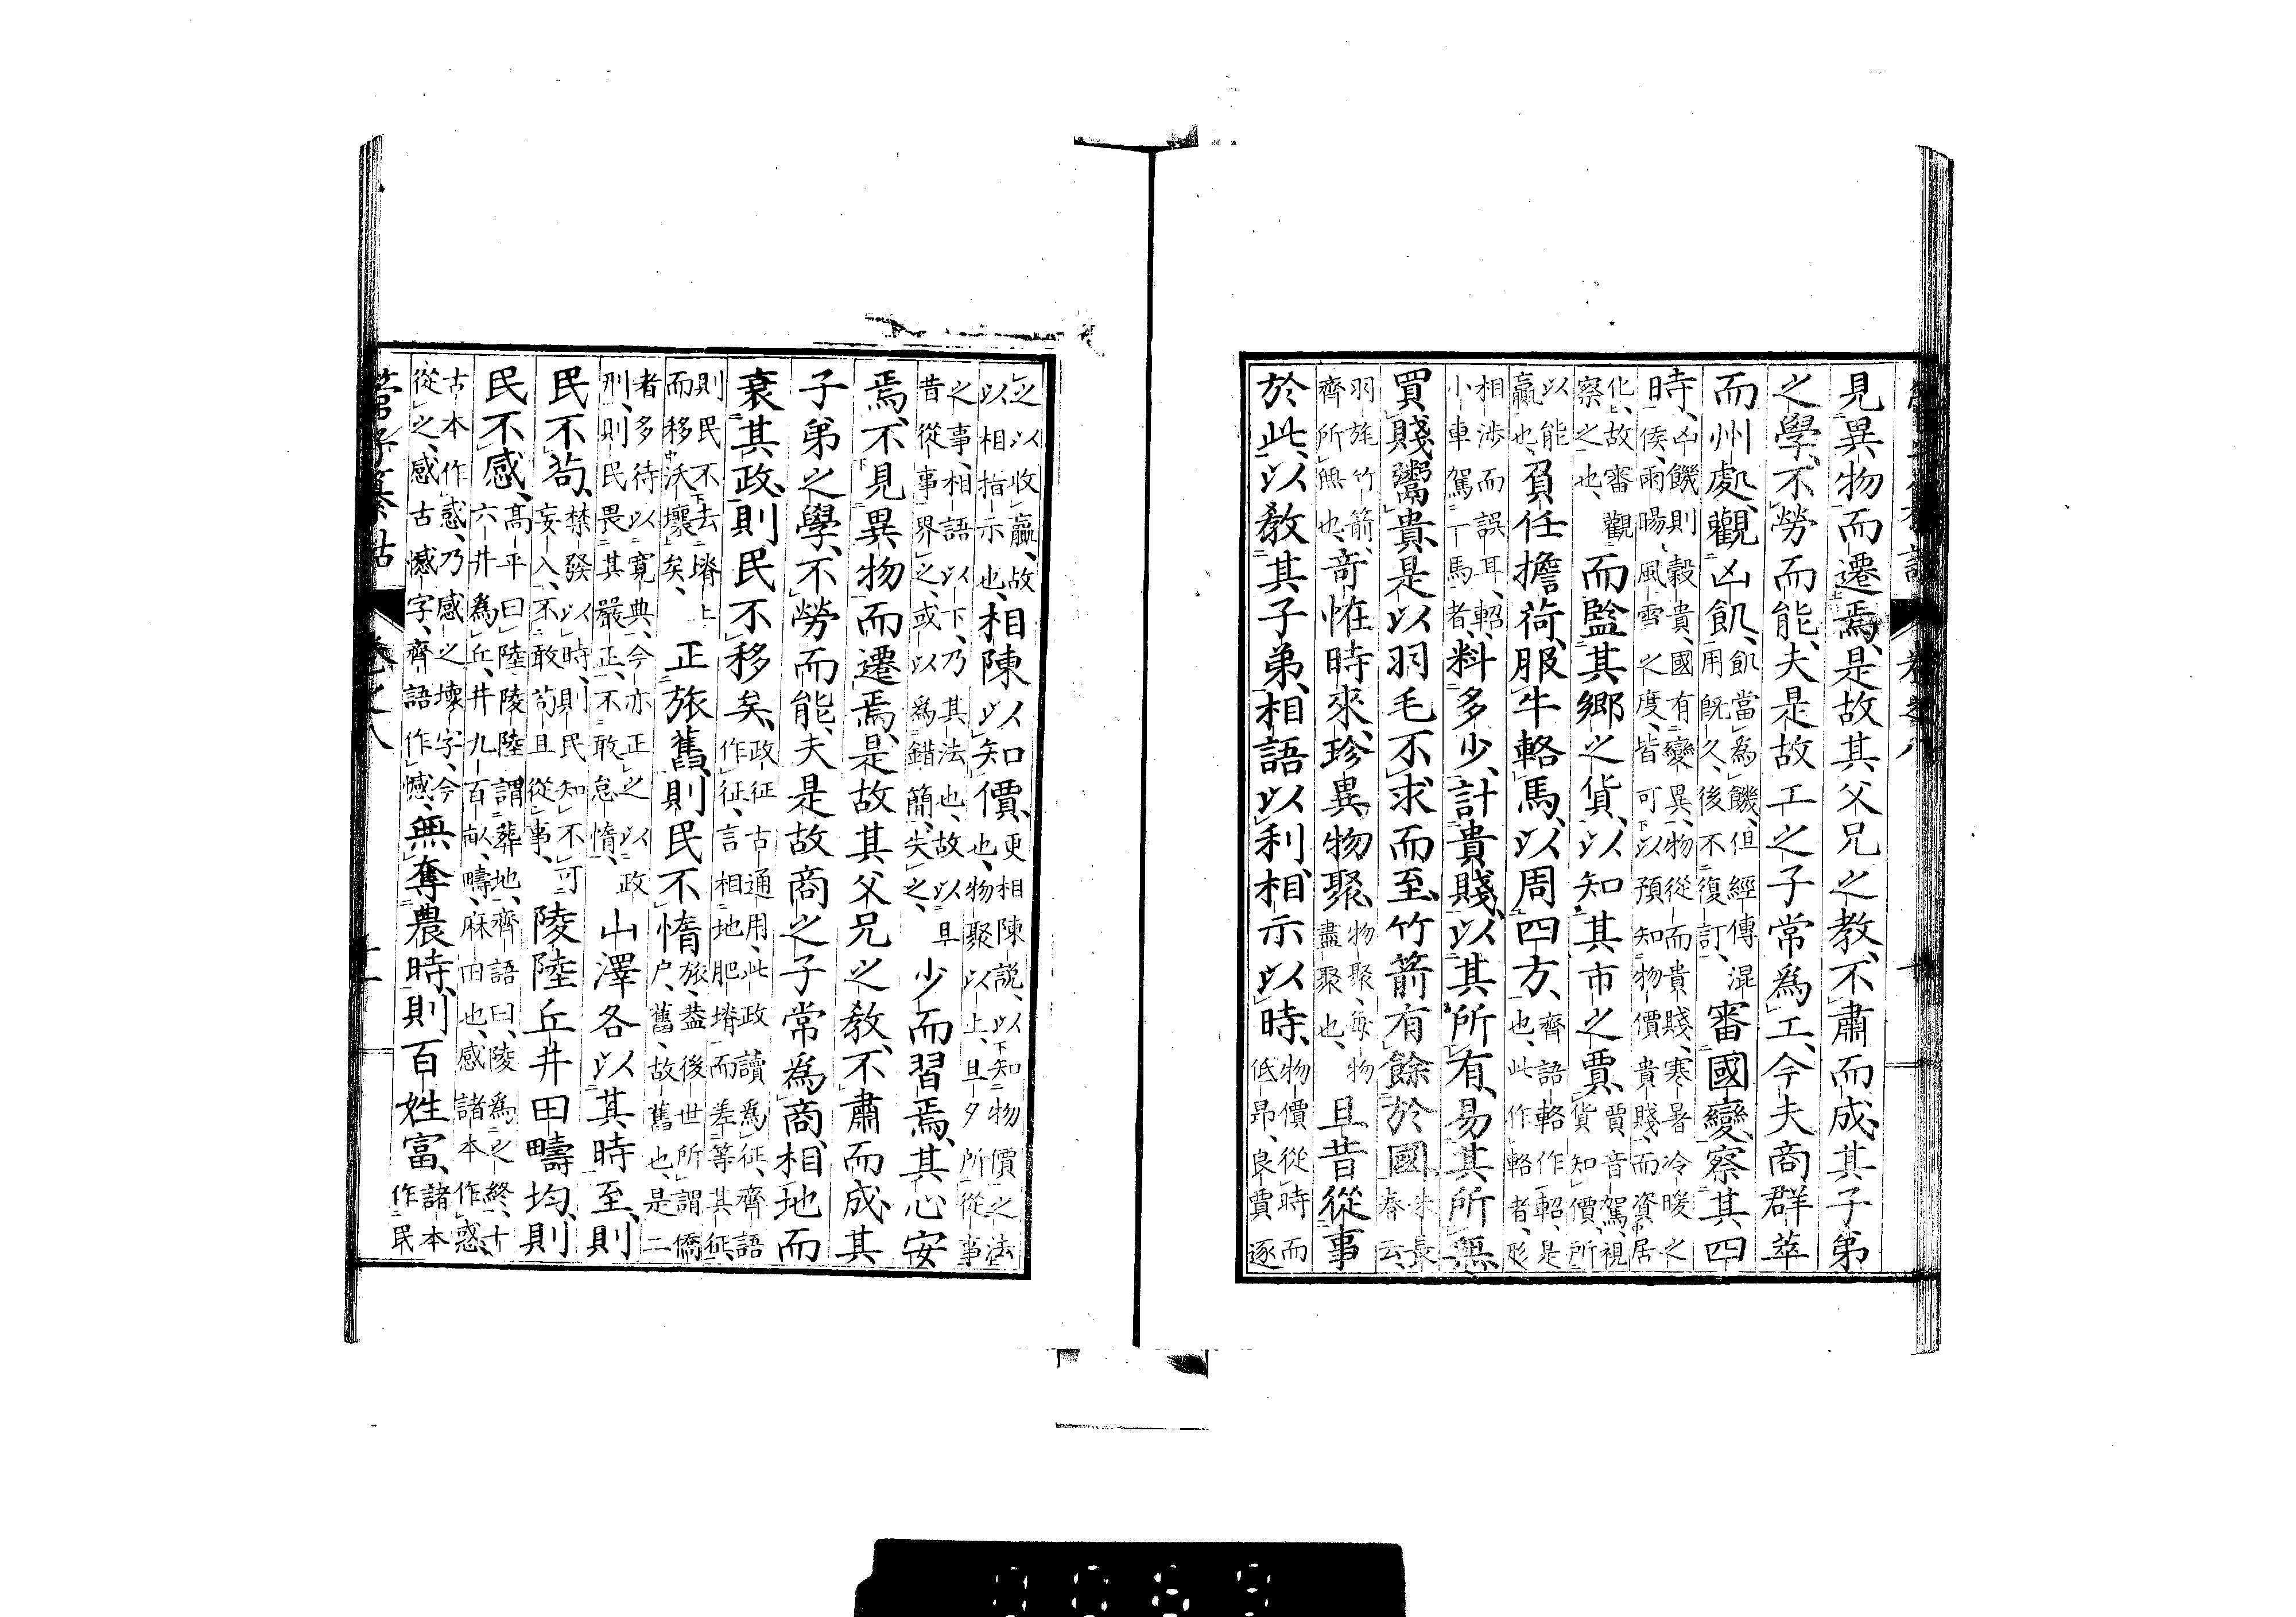 管子纂詁 卷之八 十
見異物而遷焉、是故其父兄之教、不肅而成、其子弟
之學、不勞而能、夫是故工之子常為工、今夫商群萃
而州處、觀凶飢、飢當為饑、但經傳混用既久、後不復訂、審國變、察其四
時、凶饑則穀貴、國有變異、物從而貴賤、寒暑冷暖之候、雨暘、風雪之度、皆可以預知物價貴賤、而資居
化、故審觀察之也、而監其鄉之貨、以知其市之賈、賈音駕、視貨知價、所
以能贏也、負任擔荷、服牛輅馬、以周四方、齊語輅作軺、是也、此作輅者、形
相涉而誤耳、軺、小車駕一馬者、料多少、計貴賤、以其所有、易其所無、
買賤鬻貴、是以羽毛不求而至、竹箭有餘於國、朱長春云、
羽旄竹箭、齊所無也、奇恠時來、珍異物聚、物聚、每物盡聚也、旦昔從事
於此、以教其子弟、相語以利、相示以時、物價從時而低昻、良賈逐
之以收贏、故以相指示也、相陳以知價、更相陳說、以知物價之法也、物聚以上、旦夕所從事
之事、相語以下、乃其法也、故以旦昔從事界之、或以為錯簡、失之、少而習焉、其心安
焉、不見異物而遷焉、是故其父兄之教、不肅而成、其
子弟之學、不勞而能、夫是故商之子常為商、相地而
衰其政、則民不移矣、政征古通用、此政讀為征、齊語作征、言相地肥塉而差等其征、
則民不去塉上而移沃壤矣、正旅舊、則民不惰、旅、蓋後世所謂僑戶、舊、故舊也、是二
者多待以寬典、今亦正之以政刑、則民畏其嚴正、不敢怠惰、山澤各以其時至、則
民不苟、禁發以時、則民知不可妄入、不敢苟且從事、陵陸丘井田疇均、則
民不感、高平曰陸、陵陸謂葬地、齊語曰、陵為之終、十六井為丘、井九百畝、疇、麻田也、感諸本作惑、
古本作惑、乃感之壞字、今從之、感古憾字、齊語作憾、無奪農時、則百姓富、諸本作民
管子纂詁 卷之八 十一